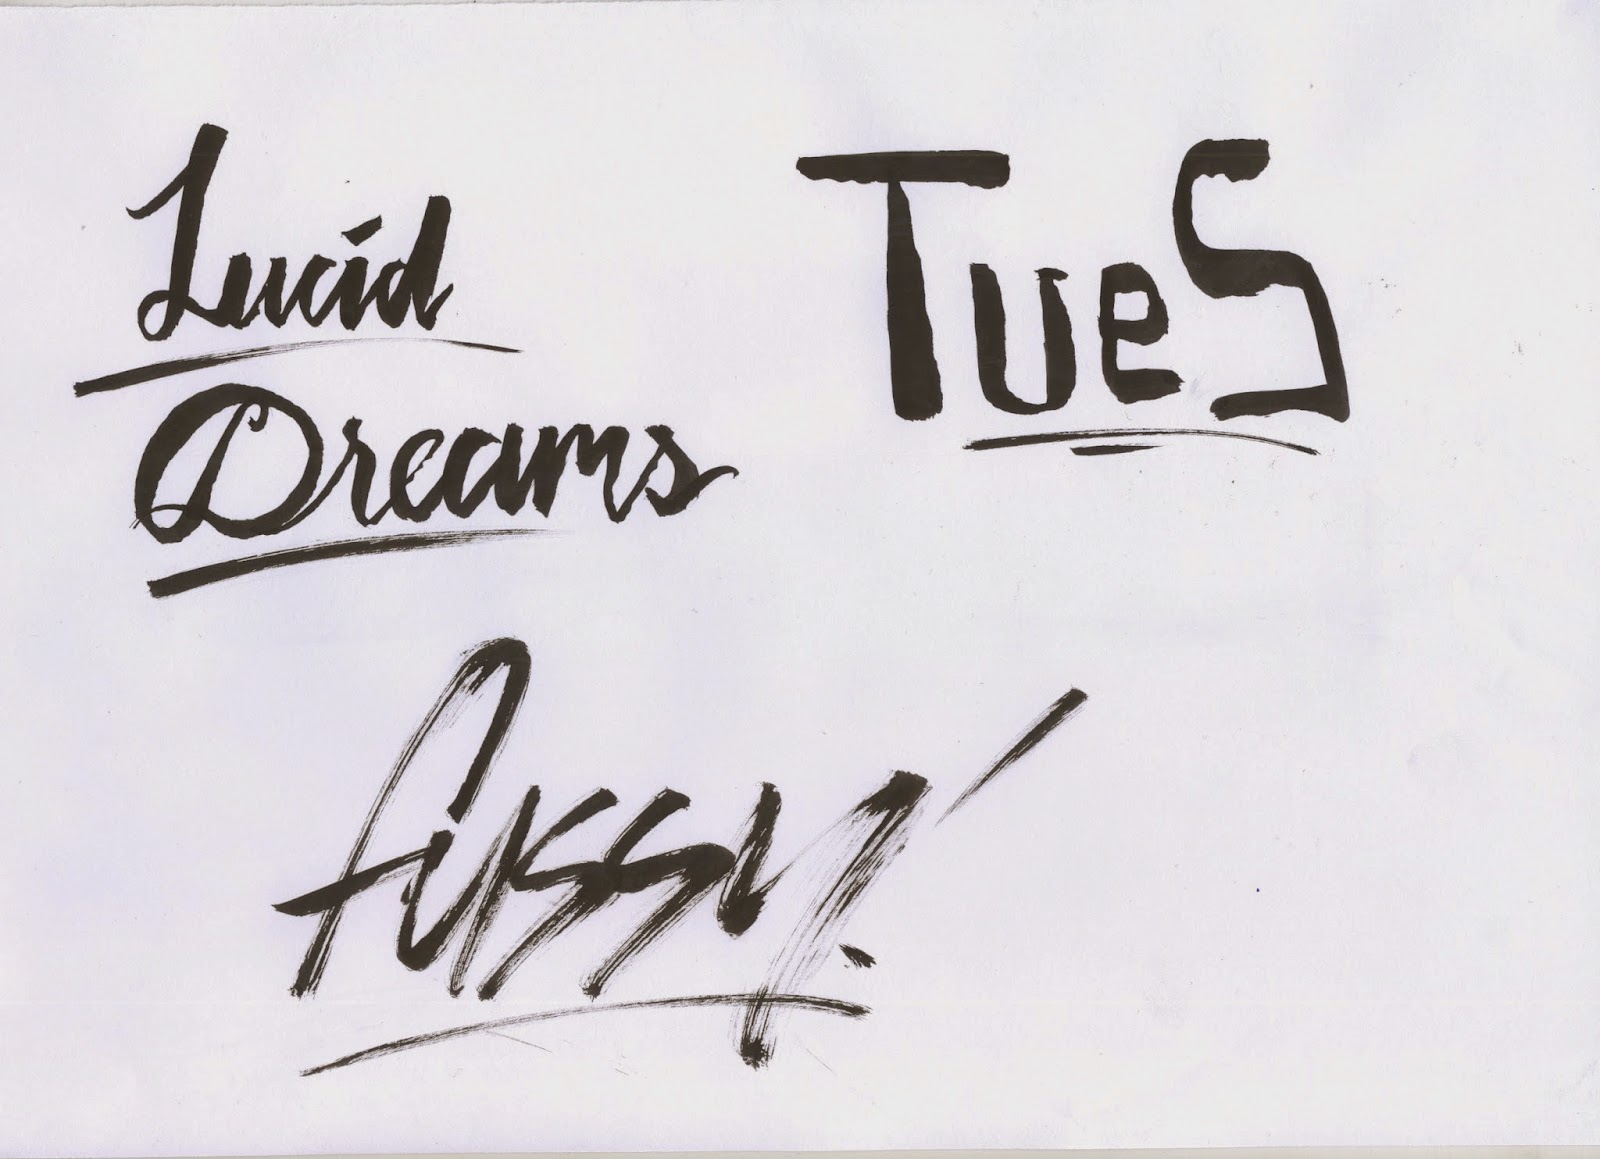 Lucid
Dreams
TueS
fussy!